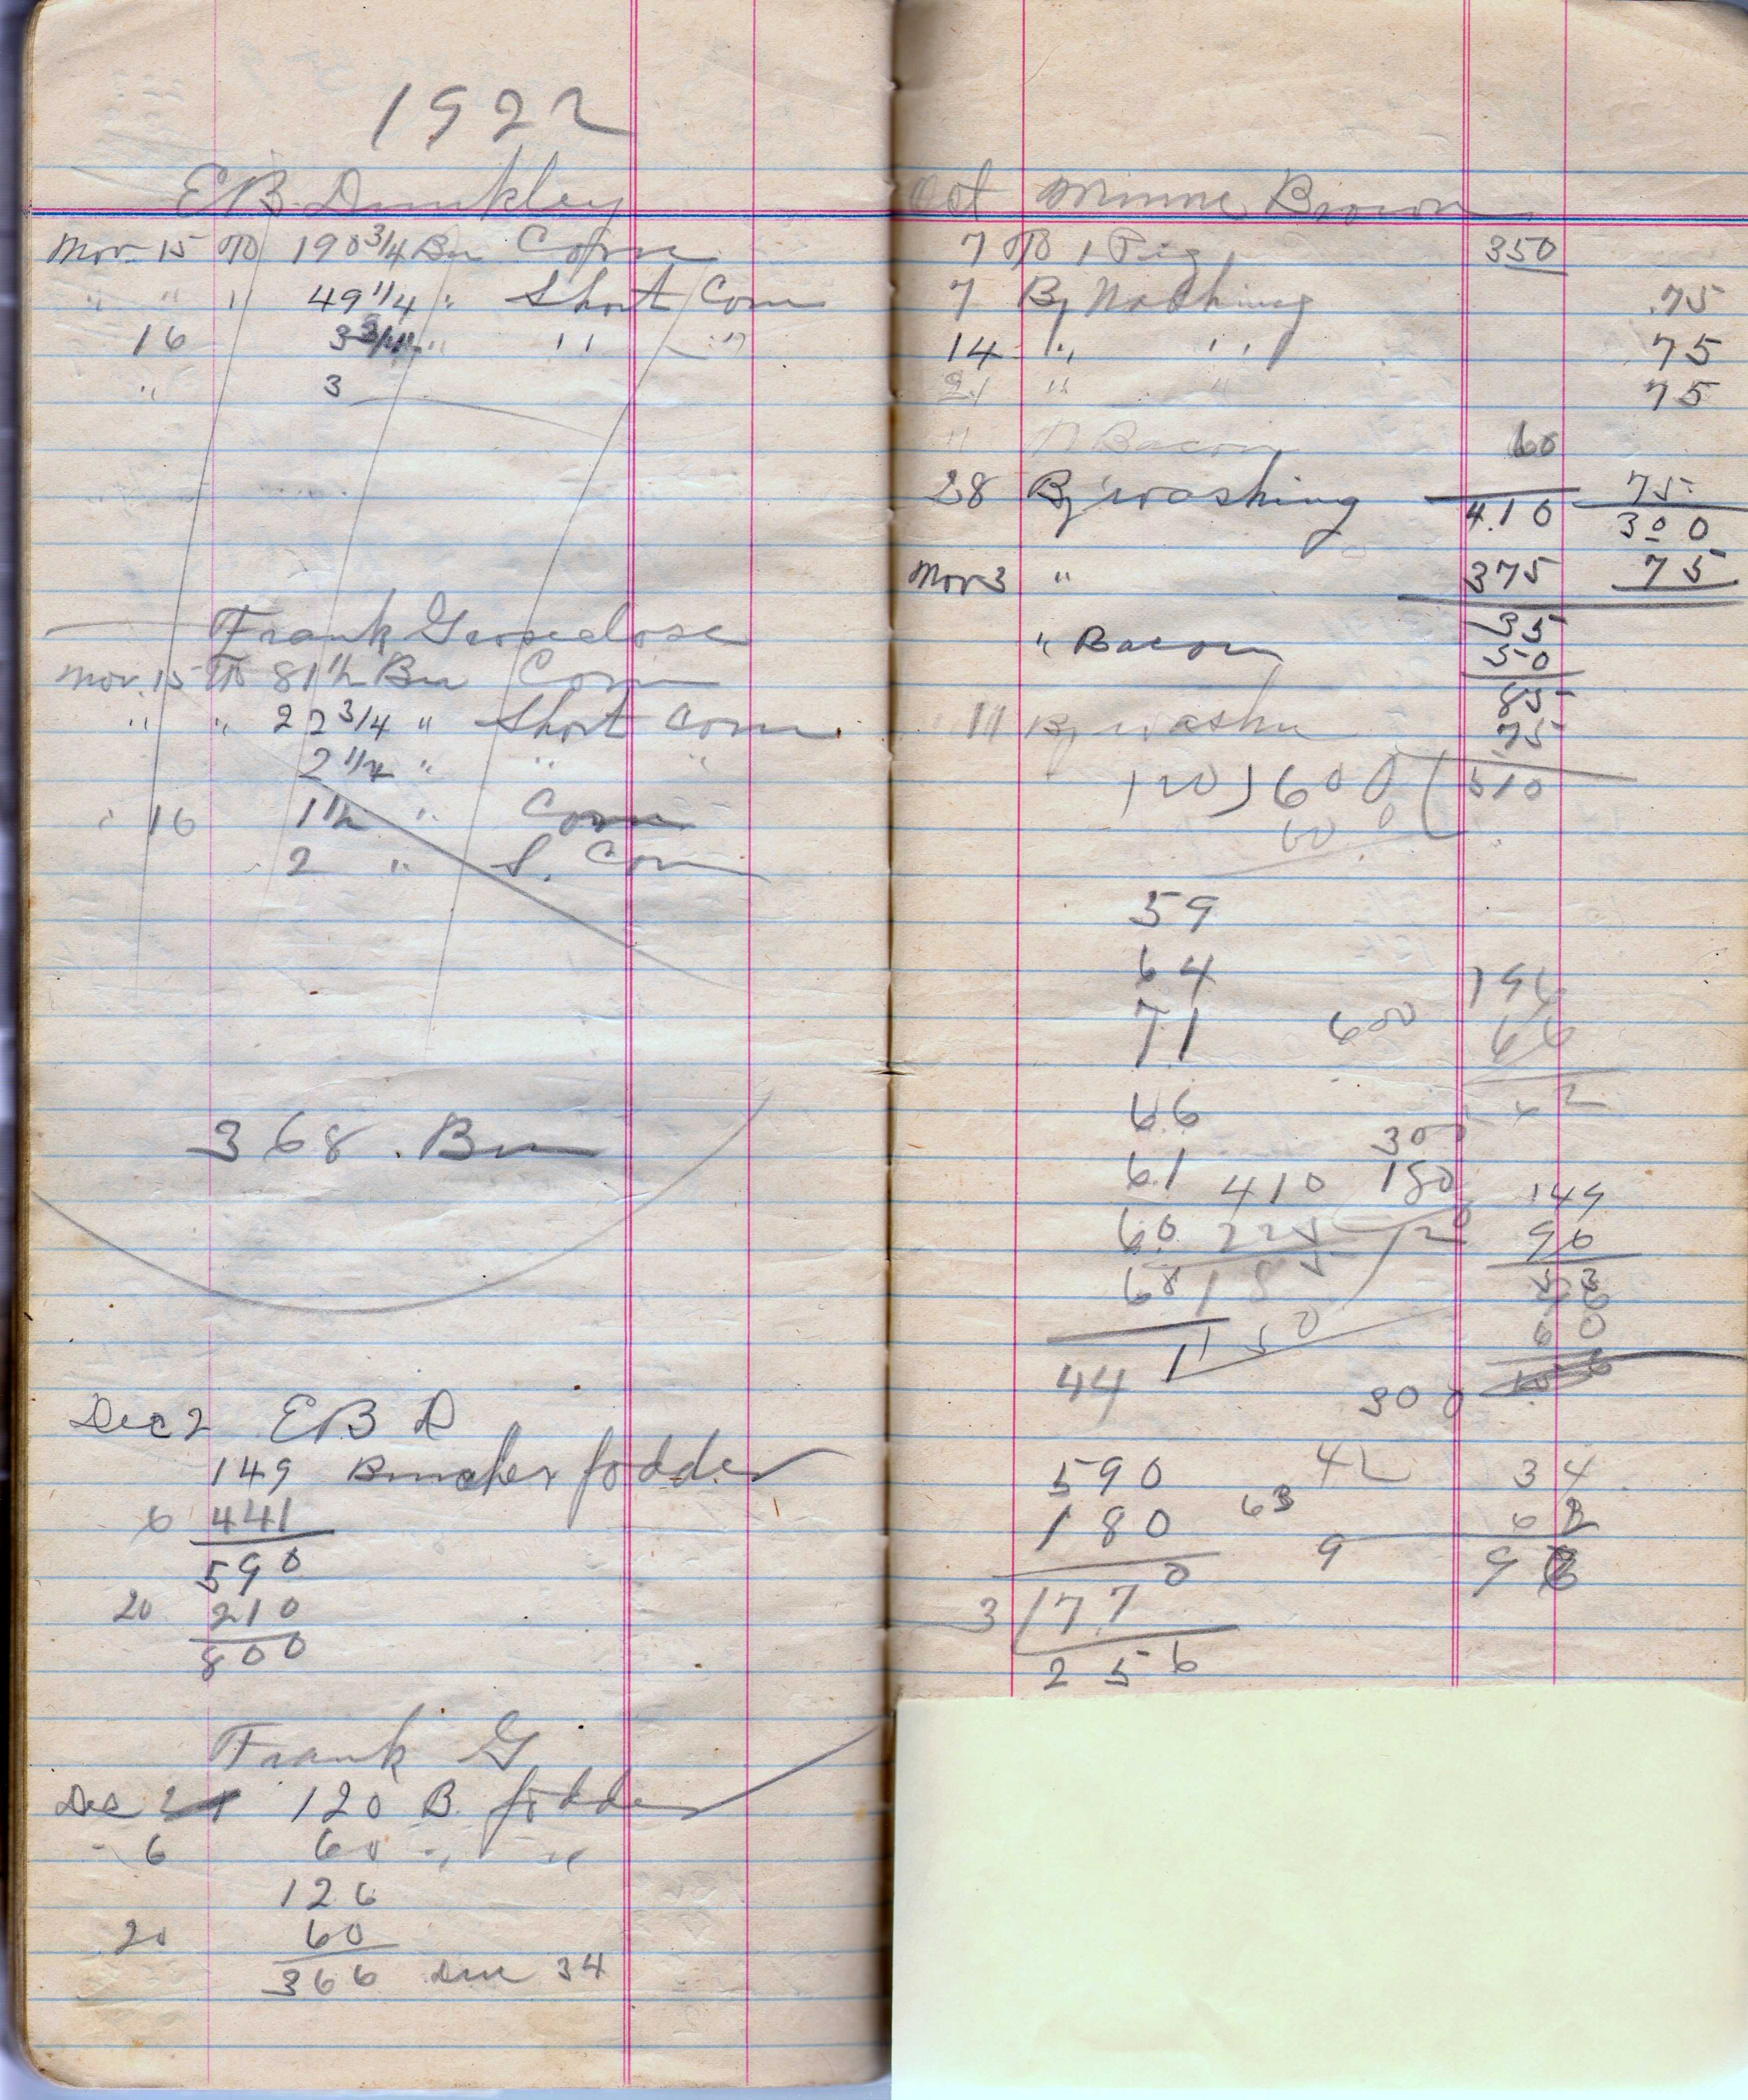 1922
E B Dunkley
Nov. 15 To 190 3/4 Bu Corn
" " " 49 1/4 " Short Corn
16 3 " " "
" 3
Frank Groseclose
Nov. 15 To 81 1/2 Bu Corn
" " 22 3/4 " Short Corn
2 1/2 " " "
" 16 1 1/2 " Corn
2 " S. Corn
368 . Bu
Dec 2 E B D
149 Bunches fodder
6 441
590
20 210
800
Frank G
Dec 2 120 B. fodder
" 6 60 " "
126
20 60
366 Due 34
Oct Minnie Brown
7 To 1 Pig 350
7 By Washing .75
14 " " 75
21 " " 75
" To Bacon 60
28 By washing 75
4.10 300
Nov 3 " 375 75
35
" Bacon 50
85
11 By washn 75
120 ) 600 ( 510
600
59
64
71 600 66
66
300
61 410 180 149
60 225 120 90
68 185
60
150
44 300
590 42 34
180 63 62
9 96
3 / 770
256